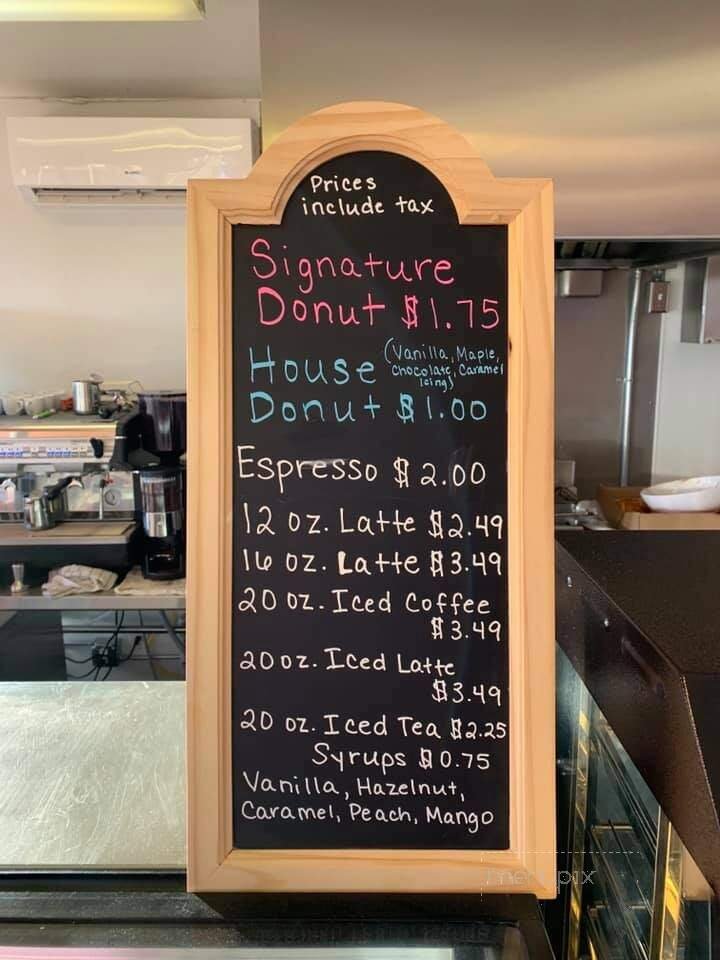 Prices
include tax
Signature
Donut $1.75
House (Vanilla, Maple,
Chocolate, Caramel
Icing)
Donut $1.00
Espresso $2.00
12 oz. Latte $2.49
16 oz. Latte $3.49
20 oz. Iced Coffee
$3.49
20 oz. Iced Latte
$3.49
20 oz. Iced Tea $2.25
Syrups $0.75
Vanilla, Hazelnut,
Caramel, Peach, Mango
menupix